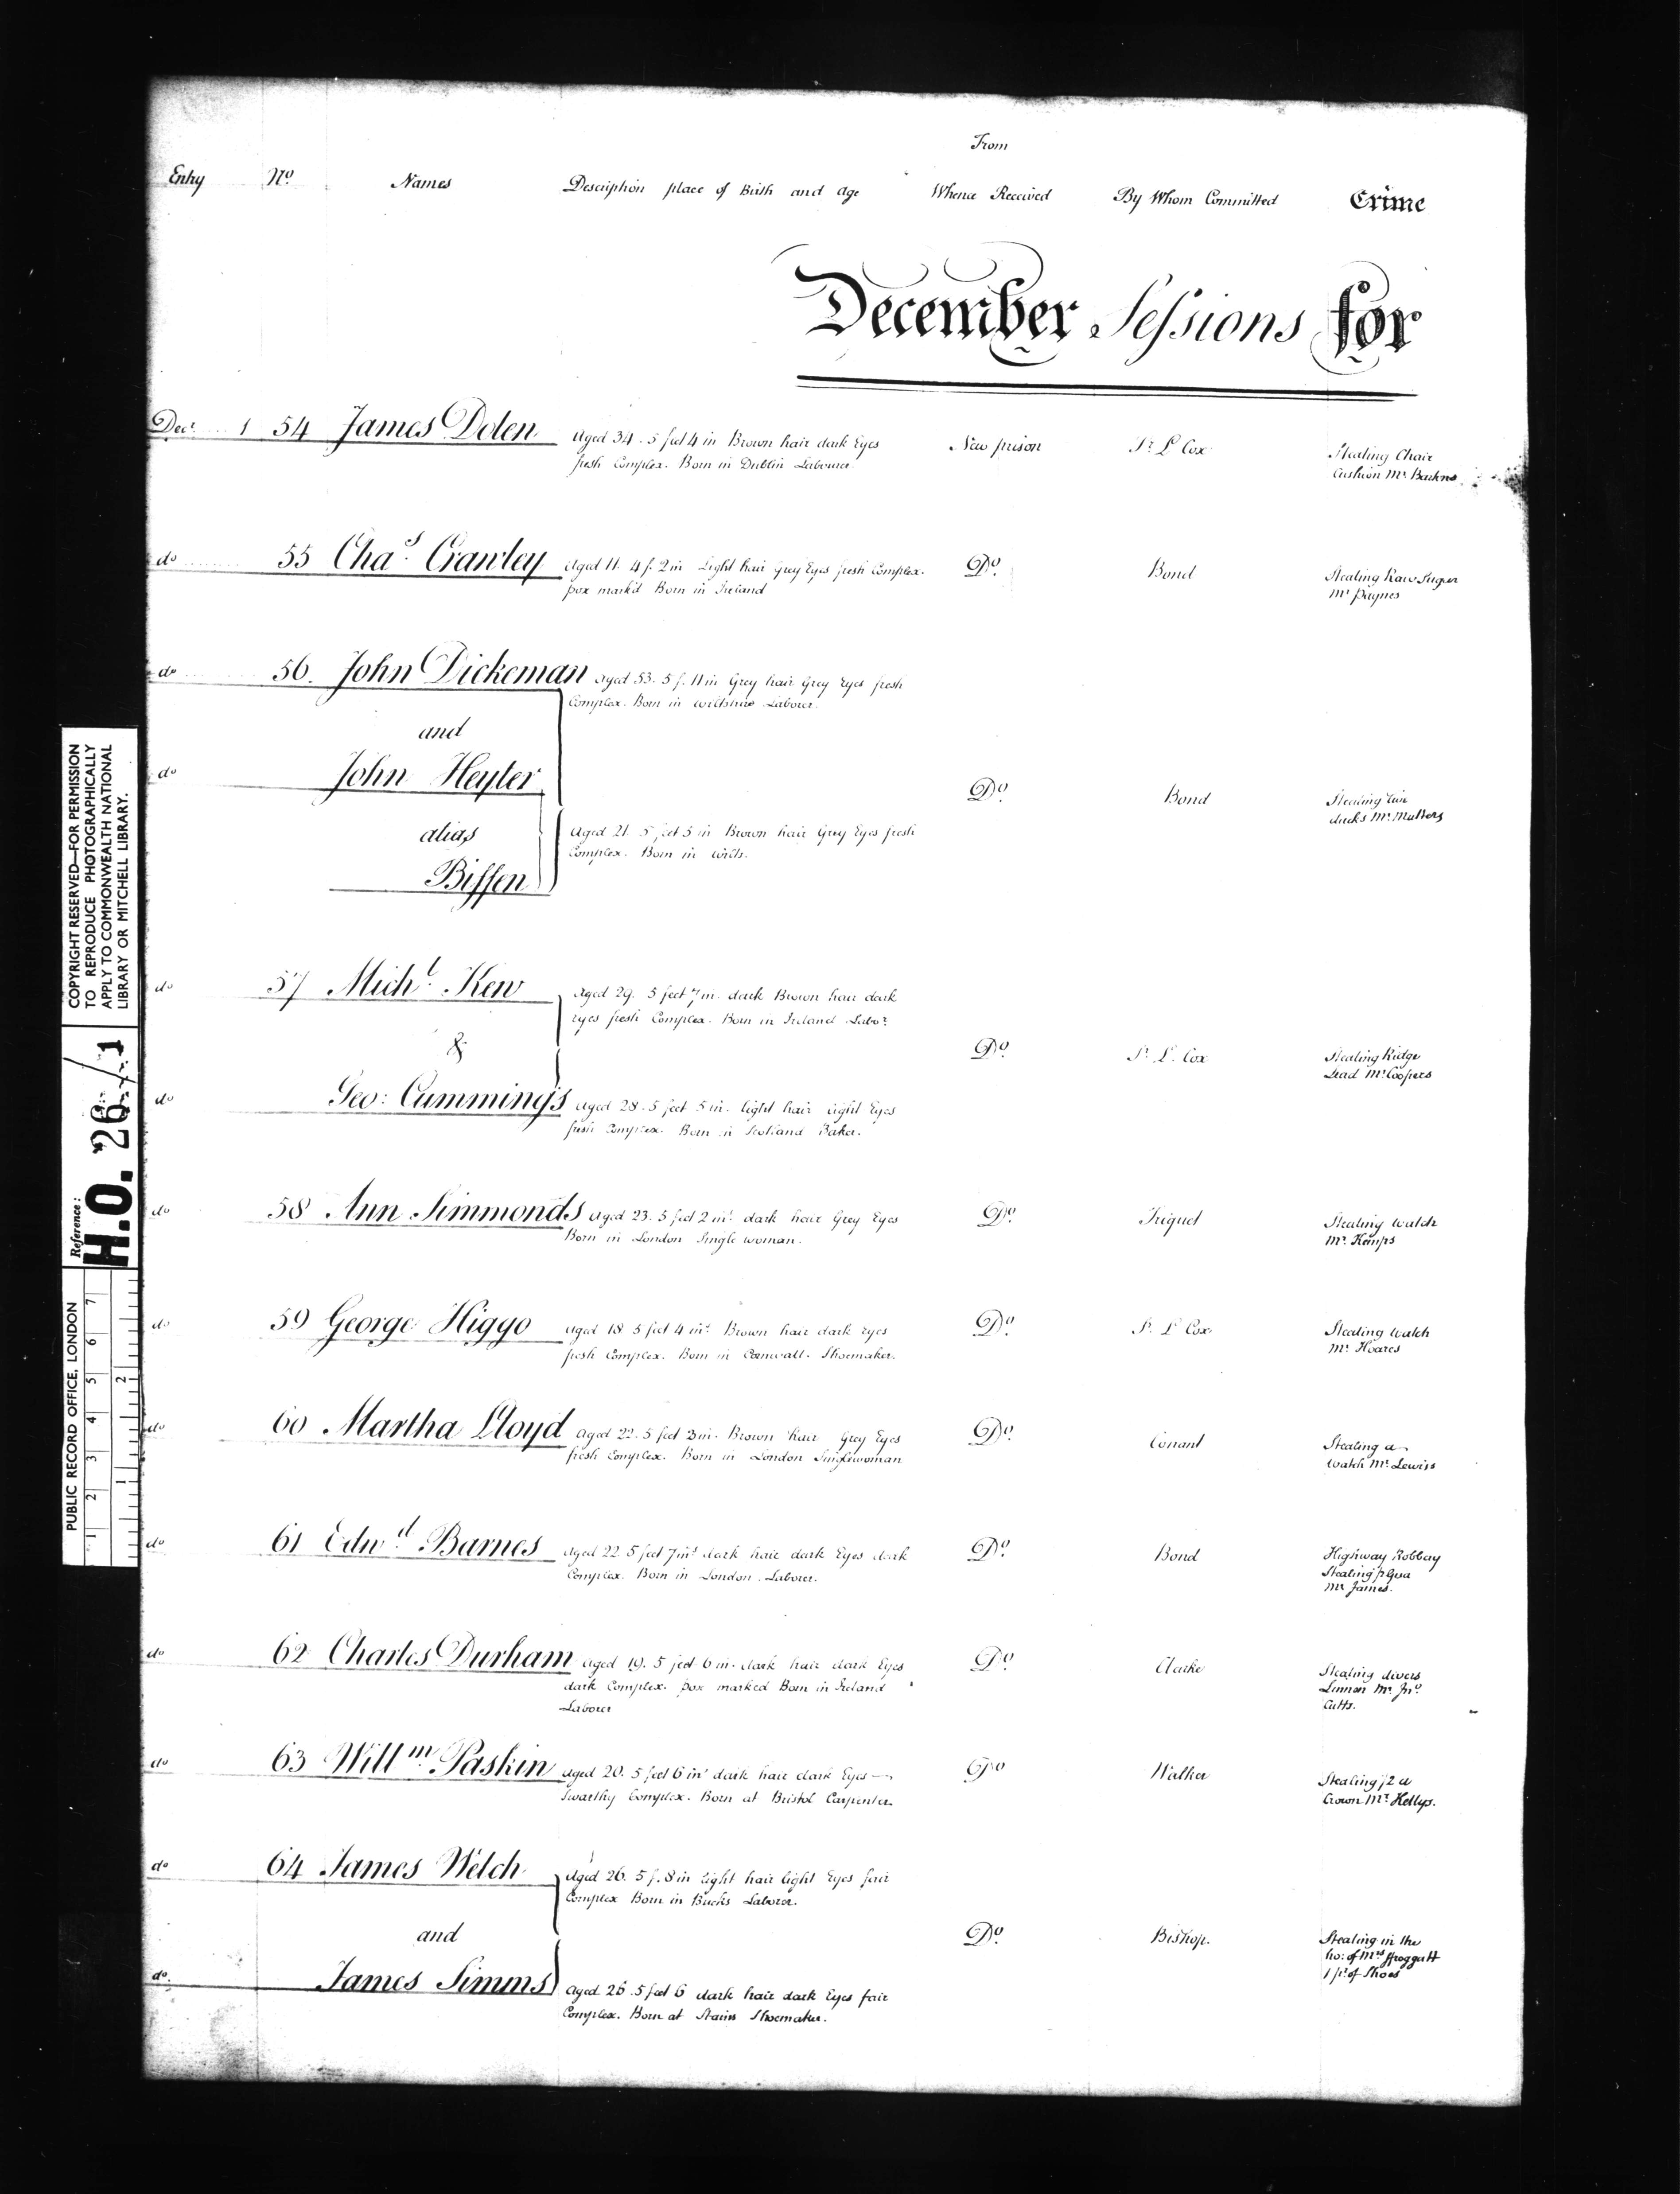 From
Entry No. Names Description place of Birth and Age Whence Received By Whom Committed Crime
December Sessions for
Decr. 1 54 James Dolen Aged 34. 5 feet 4 in Brown hair dark Eyes New prison Sr. L Cox Stealing Chair
fresh Complex. Born in Dublin Labourer Cushion Mr
do 55 Chas. Crawley Aged 11. 4 f. 2 in Light hair Grey Eyes fresh Complex. Do. Bond Stealing Raw Sugar
pox mark'd Born in Ireland Mr Paynes
do 56. John Dickeman Aged 53. 5 f. 11 in Grey hair Grey Eyes fresh
Complex. Born in Wiltshire Laborer.
and
do John Heyter Do. Bond Stealing two
ducks Mr.
alias Aged 21. 5 feet 5 in Brown hair Grey Eyes fresh
Complex. Born in Wilts.
Biffen
do 57 Michl. Kew Aged 29. 5 feet 7 in. dark Brown hair dark
Eyes fresh Complex. Born in Ireland Labor.
& Do. Sr. L. Cox Stealing Ridge
Lead Mr. Coopers
do Geo: Cummings Aged 28. 5 feet 5 in. light hair light Eyes
fresh Complex. Born in Scotland Baker.
do 58 Ann Simmonds Aged 23. 5 feet 2 in. dark hair Grey Eyes Do. Triquet Stealing Watch
Born in London Single woman. Mr. Kemps
do 59 George Higgo Aged 18 5 feet 4 ins. Brown hair dark Eyes Do. Sr. L Cox Stealing Watch
fresh Complex. Born in Cornwall. Shoemaker. Mr. Hoares
do 60 Martha Lloyd Aged 22. 5 feet 3 in. Brown hair Grey Eyes Do. Conant Stealing a
fresh Complex. Born in London Singlewoman Watch Mr. Lewiss
do 61 Edwd. Barnes Aged 22 5 feet 7 ins dark hair dark Eyes dark Do. Bond Highway Robbay
Complex. Born in London. Laborer. Stealing
Mr James.
do 62 Charles Durham Aged 19. 5 feet 6 in. dark hair dark Eyes Do Clarke Stealing divers
dark Complex. pox marked Born in Ireland Linnen Mr. Jno.
Laborer Cutts.
do 63 Willm. Paskin Aged 20. 5 feet 6 in dark hair dark Eyes — Do Walker Stealing
Swarthy Complex. Born at Bristol Carpenter Crown Mr. Kellys.
do 64 James Welch Aged 26. 5 f. 8 in light hair light Eyes fair
Complex Born in Bucks Laborer.
and Do Bishop. Stealing in the
ho: of Mrs Froggatt
do. James Simms Aged 26. 5 feet 6 dark hair dark Eyes fair 1 pr. of Shoes
Complex. Born at Stains Shoemaker.
COPYRIGHT RESERVED—FOR PERMISSION
TO REPRODUCE PHOTOGRAPHICALLY
APPLY TO COMMONWEALTH NATIONAL
LIBRARY OR MITCHELL LIBRARY.
Reference:
H.O. 26/1
PUBLIC RECORD OFFICE, LONDON
1 2 3 4 5 6 7
1 2